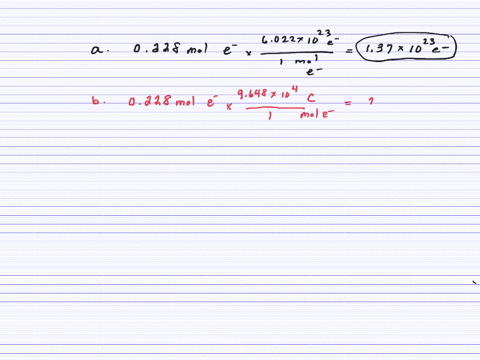 a. 0.228 mol e⁻ × 6.022 × 10²³ e⁻ / 1 mol e⁻ = 1.37 × 10²³ e⁻
b. 0.228 mol e⁻ × 9.648 × 10⁴ C / 1 mol e⁻ = ?